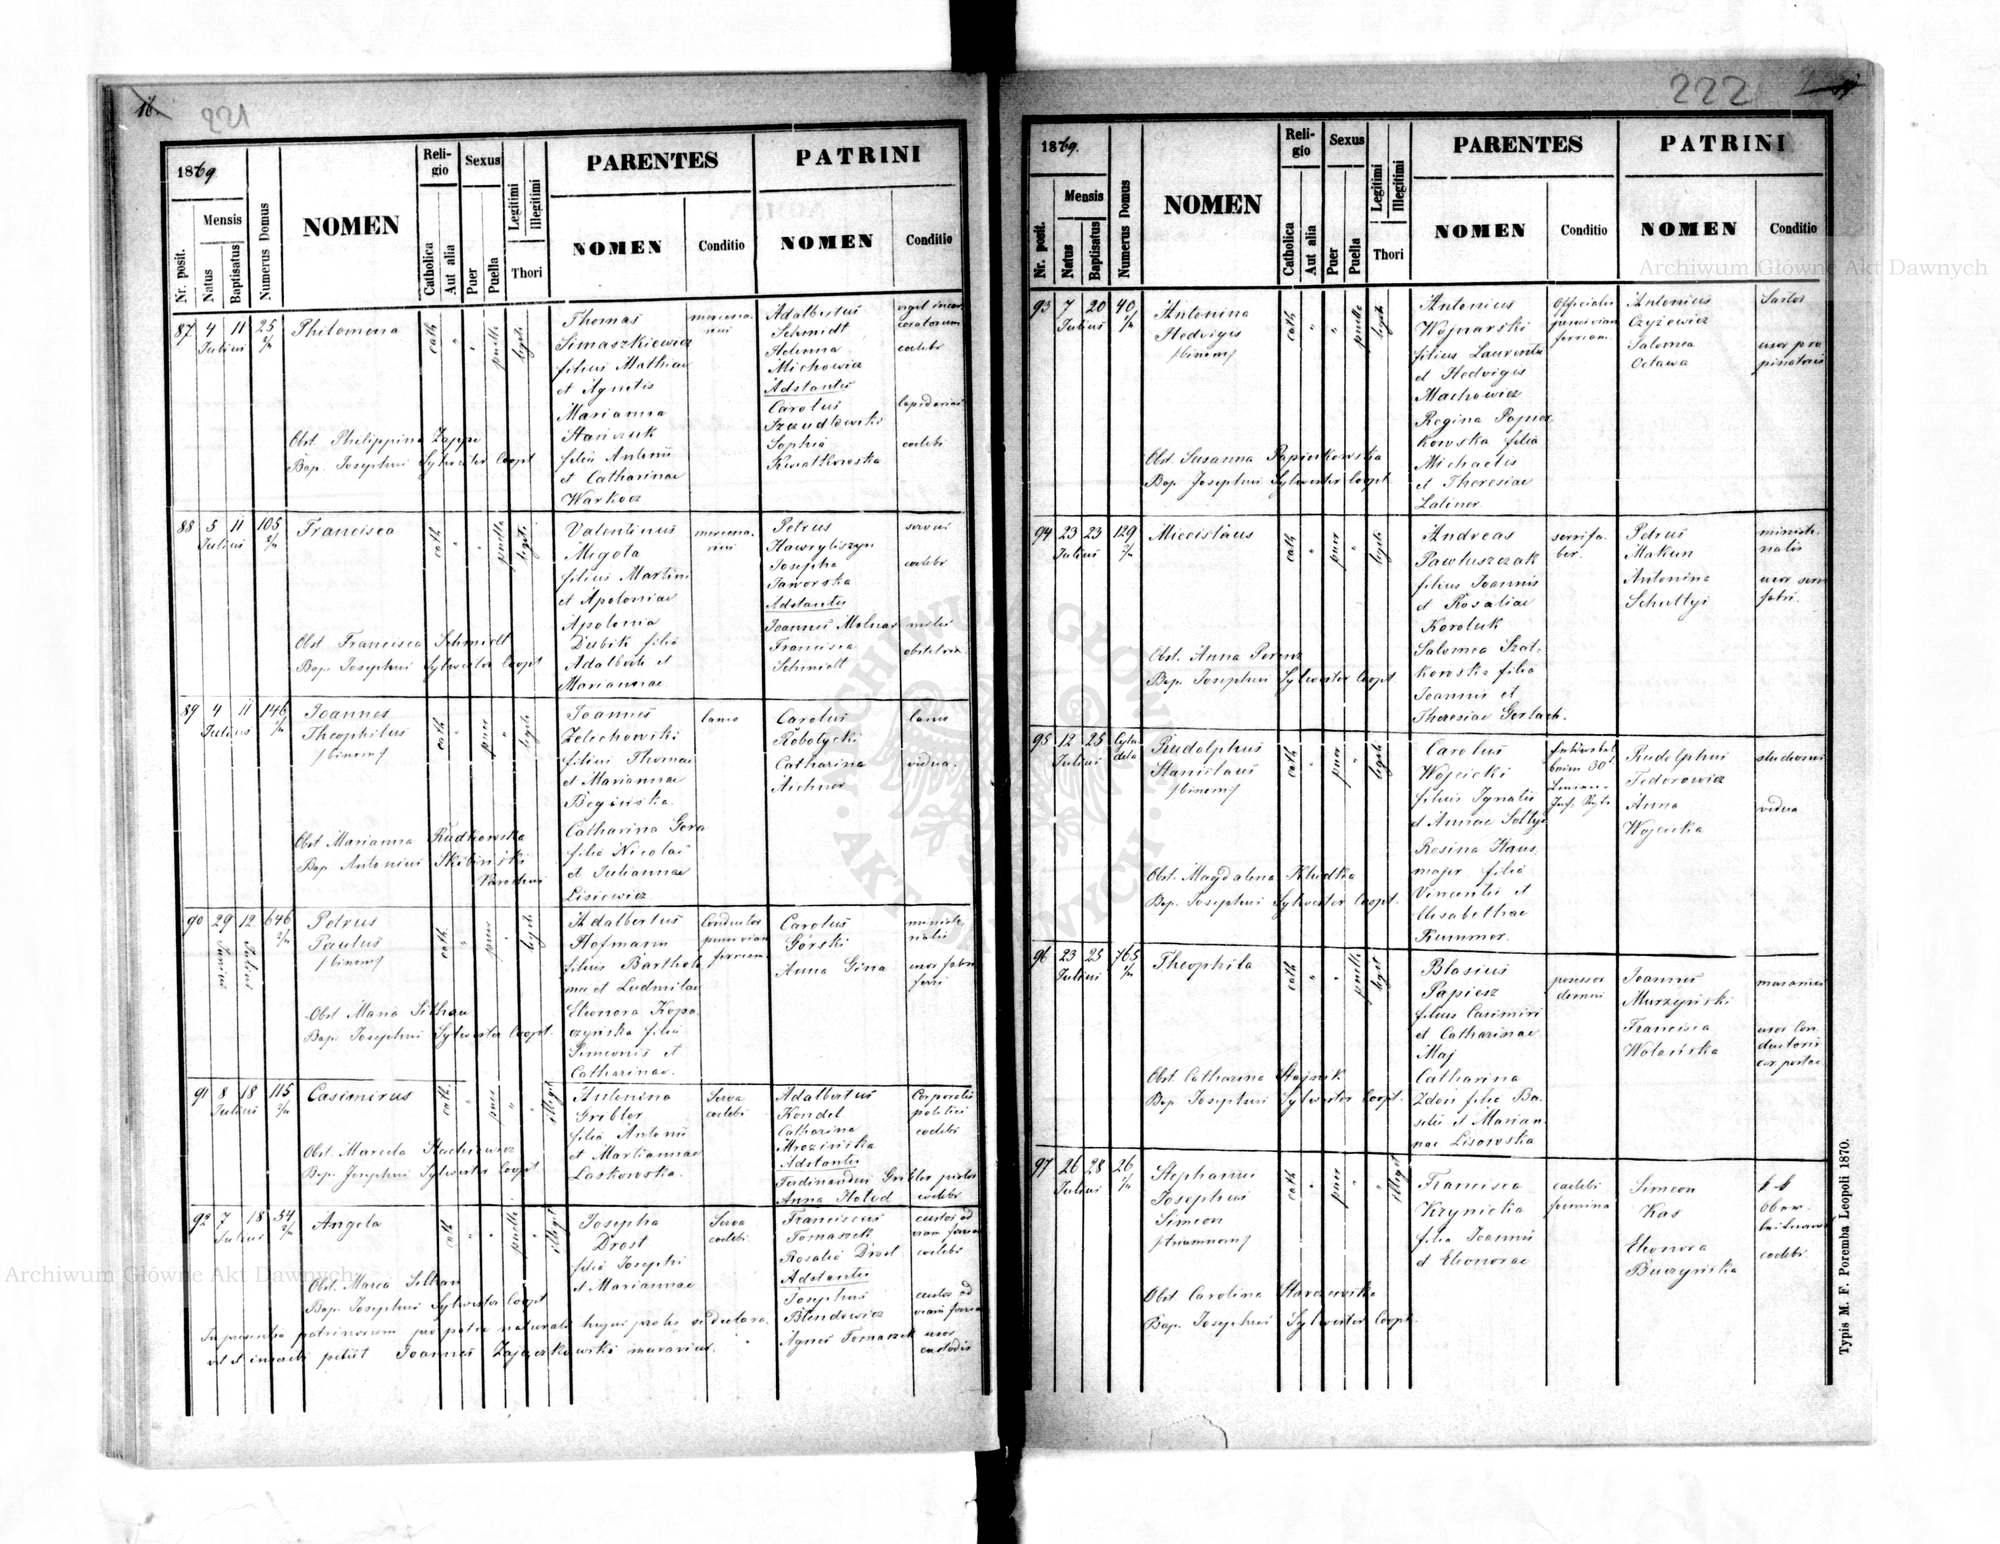 16
221
1869
Nr. posit.
Mensis
Natus
Baptisatus
Numerus Domus
NOMEN
Reli-
gio
Catholica
Aut alia
Sexus
Puer
Puella
Legitimi
Illegitimi
Thori
PARENTES
NOMEN
Conditio
PATRINI
NOMEN
Conditio
87 4 11 25
Julius
Philomena
cath
puella
legit
Thomas
Simaszkiewicz
filius Mathiae
et Agnetis
Marianna
Stańczuk
filia Antonii
et Catharinae
Warkocz
mercena-
rius
Adalbertus
Schmidt
Helenna
Michowicz
Adstantes
Carolus
Szaudlowski
Sophia
Kwiatkowska
caelebs
lapidarius
caelebs
Obst. Philippina Zappe
Bap. Josephus Sylwester Coopt
88 5 11 105
Julius
Francisca
cath
puella
legit
Valentinus
Migola
filius Martini
et Apoloniae
Apolonia
Dubik filia
Adalberti et
Mariannae
mercena-
rius
Petrus
Hawryliszyn
Josepha
Jaworska
Adstantes
Joannes Molnar
Francisca
Schmidt
servus
caelebs
miles
obstetrix
Obst. Francisca Schmidt
Bap. Josephus Sylwester Coopt
89 4 11 146
Julius
Joannes
Theophilus
/binom/
cath
puer
legit
Joannes
Zelechowski
filius Thomae
et Mariannae
Begińska.
Catharina Gora
filia Nicolai
et Juliannae
Lisiewicz
lanio
Carolus
Robotycki
Catharina
Aichner
lanio
vidua.
Obst. Marianna Radkowska
Bap. Antonius Skibiński
Parochus
90 29 12 646
Junius
Julius
Petrus
Paulus
/binom/
cath
puer
legit
Adalbertus
Hofmann
filius Bartholo
mei et Ludmilae
Eleonora Kopa-
czyńska filia
Simeonis et
Catharinae.
Conductor
penes viam
ferream
Carolus
Górski
Anna Gina
ministe-
rialis
uxor fabri
ferri
Obst. Maria Silhan
Bap. Josephus Sylwester Coopt.
91 8 18 115
Julius
Casimirus
cath.
puer
illegit
Antonina
Gribler
filia Antonii
et Mariannae
Laskowska.
Serva
caelebs
Adalbertus
Kondel
Catharina
Mrozińska
Adstantes
Ferdinandus Gribler pistor
Anna Holod caelebs
Corporalis
politici
caelebs
Obst. Marcela Stachiewicz
Bap. Josephus Sylwester Coopt.
92 7 18 54
Julius
Angela
cath
puella
illegit
Josepha
Drost
filia Josephi
et Mariannae
Serva
caelebs.
Franciscus
Tomaszek
Rosalia Drost
Adstantes
Josephus
Blendowicz
Agnes Tomaszek
custos ad
viam ferream
caelebs
custos ad
viam ferream
uxor
custodis
Obst. Maria Silhan
Bap. Josephus Sylwester Coopt
In presentia patrinorum pro patre naturali hujus prolis se declara-
vit et inscribi petiit Joannes Zajączkowski murarius.
222
1869.
Nr. posit.
Mensis
Natus
Baptisatus
Numerus Domus
NOMEN
Reli-
gio
Catholica
Aut alia
Sexus
Puer
Puella
Legitimi
Illegitimi
Thori
PARENTES
NOMEN
Conditio
PATRINI
NOMEN
Conditio
93 7 20 40
Julius
Antonina
Hedvigis
/binom/
cath
puella
legit
Antonius
Wojnarski
filius Laurentii
et Hedvigis
Machowicz
Regina Papier
kowska filia
Michaelis
et Theresiae
Latiner
Officialis
penes viam
ferream
Antonius
Czyżewicz
Salomea
Octawa
Sartor
uxor pro
pinatoris
Obst. Susanna Papierkowska
Bap. Josephus Sylwester Coopt
94 23 23 129
Julius
Miecislaus
cath
puer
legit
Andreas
Pawluszczak
filius Joannis
et Rosaliae
Koroluk
Salomea Szat-
kowska filia
Joannis et
Theresiae Gerlach.
serrifa-
ber.
Petrus
Makun
Antonina
Schultys
ministe-
rialis
uxor serri
fabri.
Obst. Anna Perenz
Bap. Josephus Sylwester Coopt
95 12 25 Cyta
dela
Julius
Rudolphus
Stanislaus
/binom/
cath
puer
legit
Carolus
Wojcicki
filius Ignatii
et Annae Soltys
Rosina Haus
majer filia
Vincentii et
Elisabethae
Kummer.
beim 30t
Linien-
Inf. Rgt.
Rudolphus
Fedorowicz
Anna
Wojcicka
studiosus
vidua
Obst. Magdalena Kludka
Bap. Josephus Sylwester Coopt.
96 23 25 765
Julius
Theophila
cath
puella
legit
Blasius
Papiesz
filius Casimiri
et Catharinae
Maj
Catharina
Zdeń filia Ba-
silii et Marian-
nae Lisowska
possessor
domus
Joannes
Murzyński
Francisca
Wolańska
murarius
uxor Con-
ductoris
Obst. Catharina Stajnik
Bap. Josephus Sylwester Coopt.
97 26 28 26
Julius
Stephanus
Josephus
Simeon
/trinom/
cath
puer
illegit
Francisca
Krynicka
filia Joannis
et Eleonorae
caelebs
femina
Simeon
Kas
Eleonora
Buczyńska
k k
Ober-
caelebs
Obst. Carolina Starczewska
Bap. Josephus Sylwester Coopt.
Typis M. F. Poremba Leopoli 1870.
Archiwum Główne Akt Dawnych
Archiwum Główne Akt Dawnych
ARCHIWUM GŁÓWNE AKT DAWNYCH